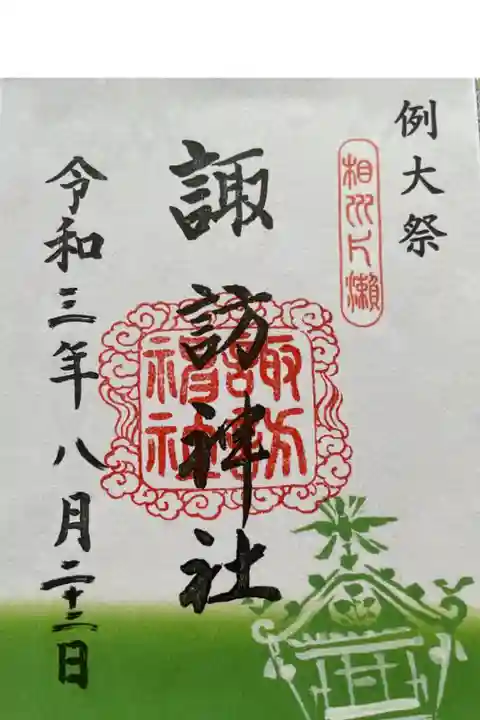 例大祭
相州片瀬
諏訪神社
諏訪神社
令和三年八月二十二日